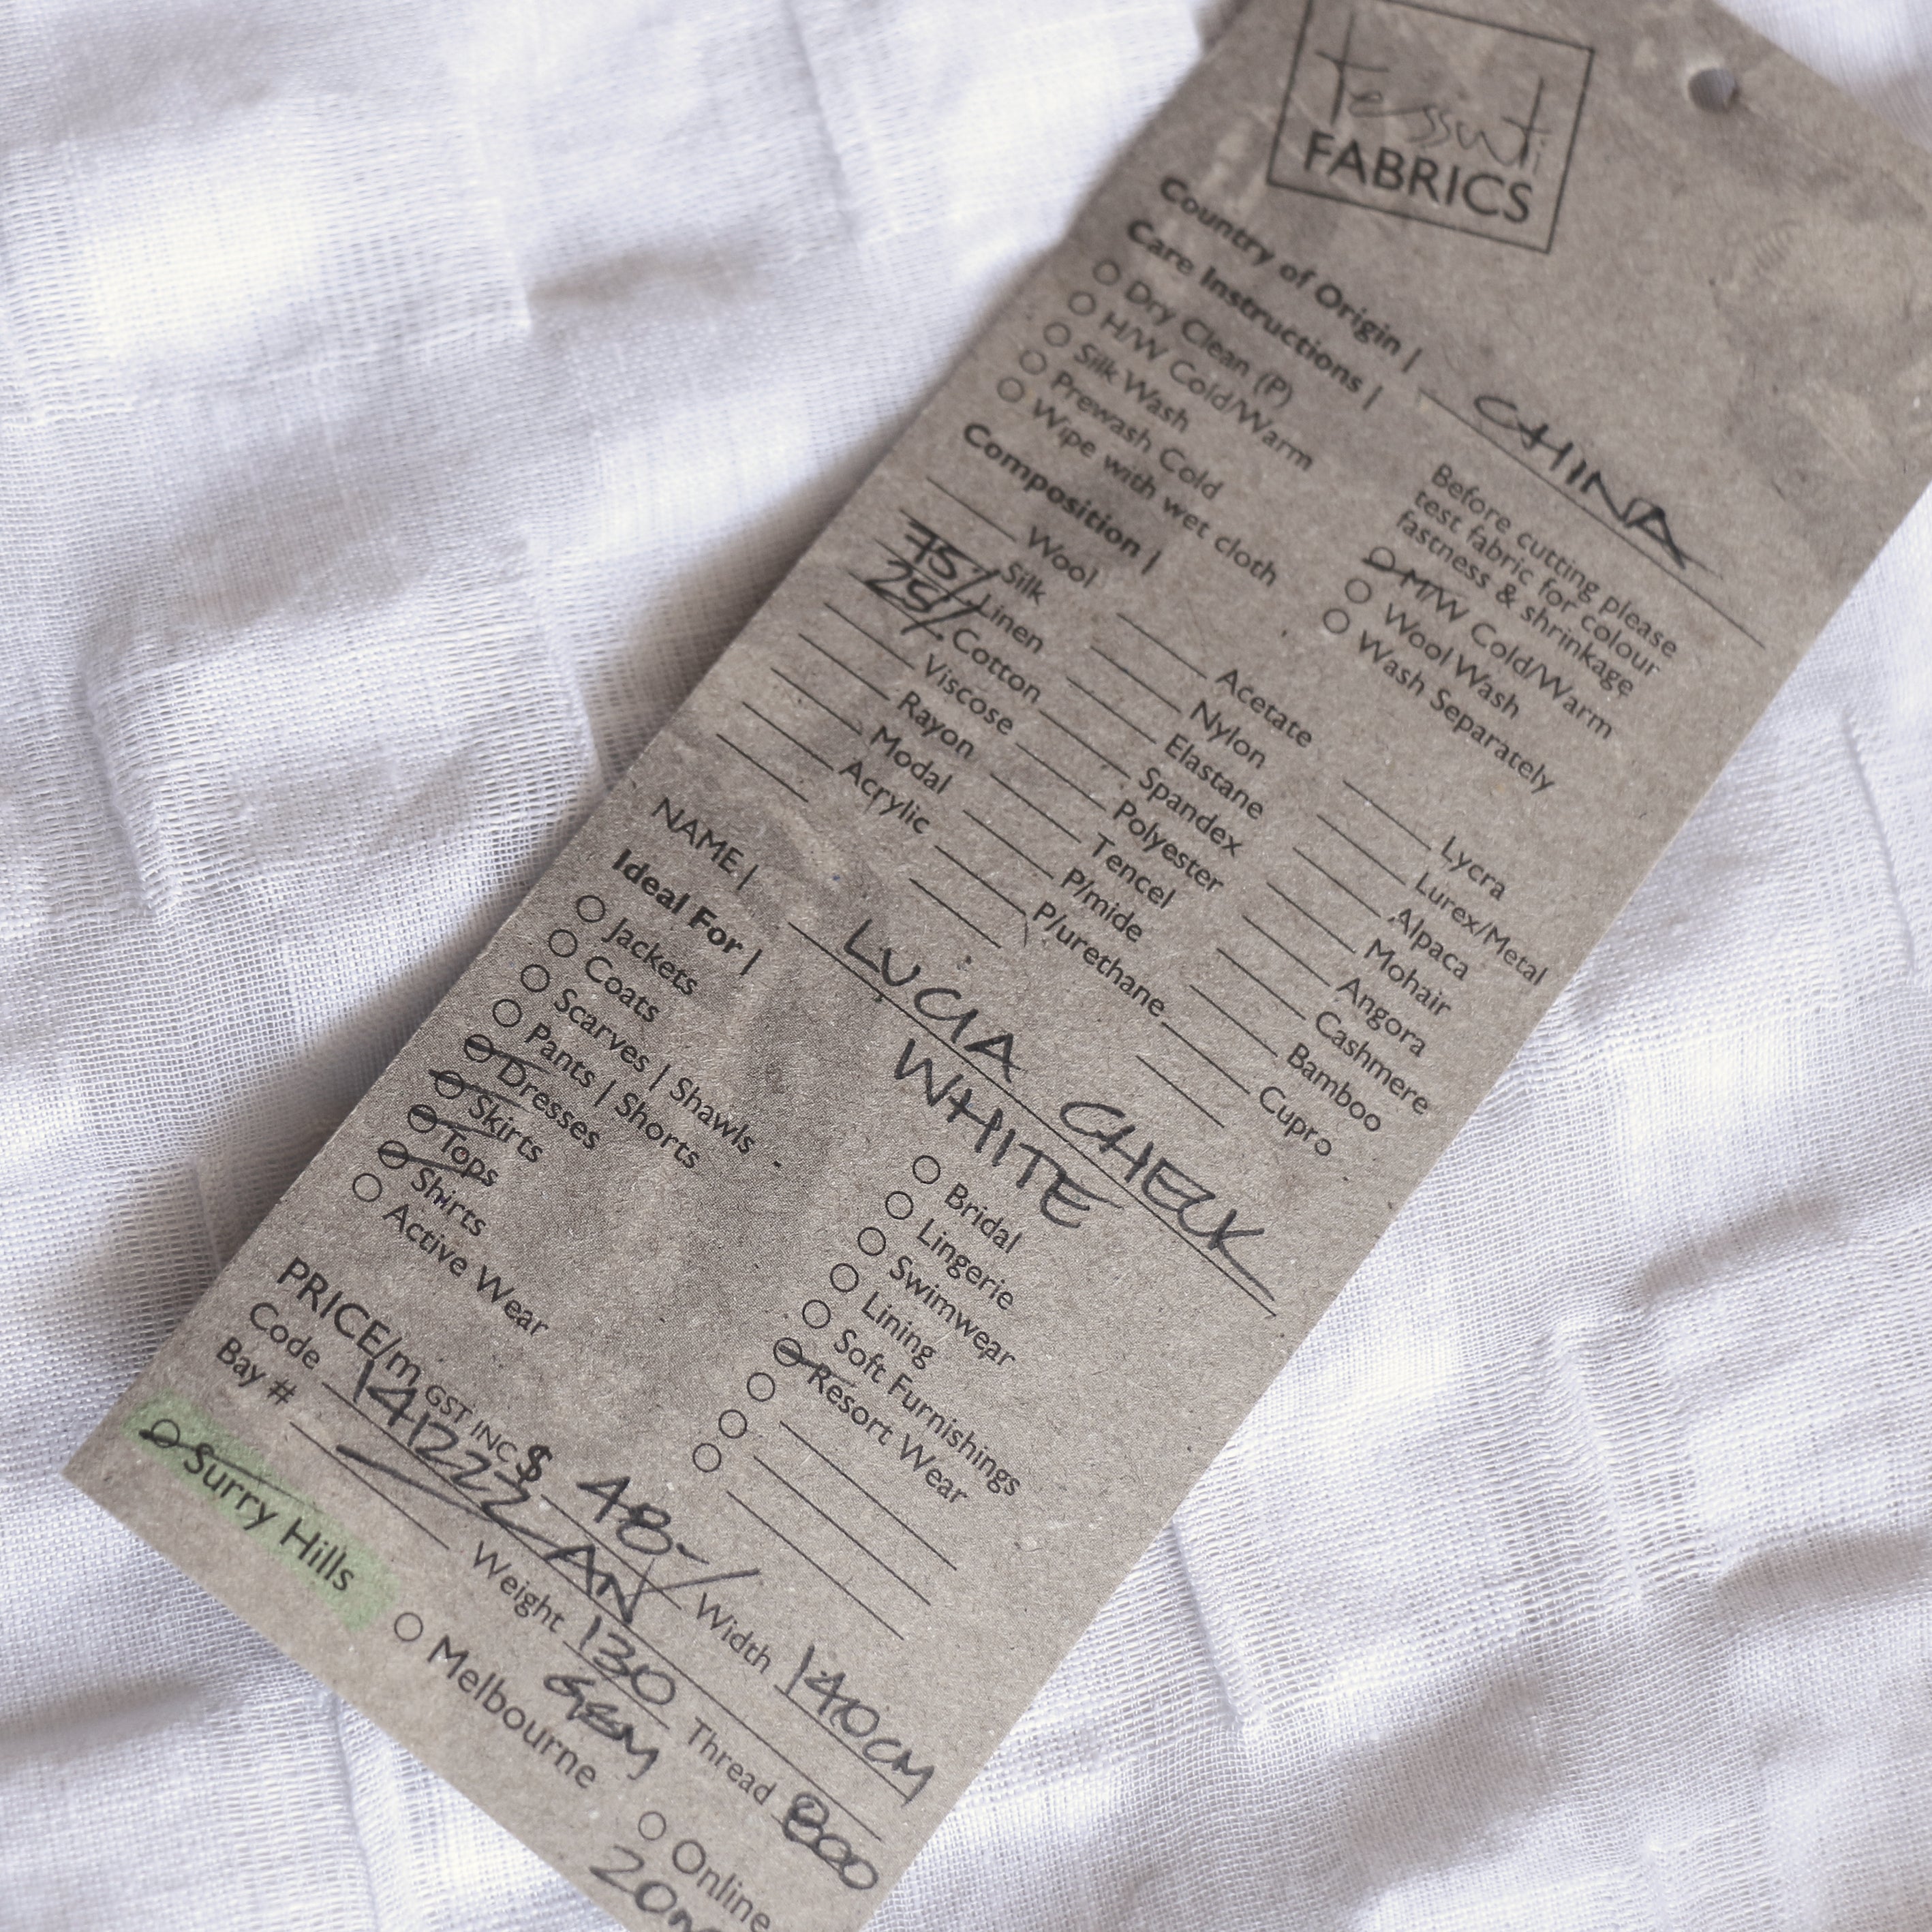 Tessuti
FABRICS
Country of Origin | CHINA
Care Instructions |
Dry Clean (P)
H/W Cold/Warm
Silk Wash
Prewash Cold
Wipe with wet cloth
Before cutting please
test fabric for colour
fastness & shrinkage
M/W Cold/Warm
Wool Wash
Wash Separately
Composition |
Wool
Silk
75/ Linen
25/ Cotton
Viscose
Rayon
Modal
Acrylic
Acetate
Nylon
Elastane
Spandex
Polyester
Tencel
P/mide
P/urethane
Lycra
Lurex/Metal
Alpaca
Mohair
Angora
Cashmere
Bamboo
Cupro
NAME | LUCIA CHECK
WHITE
Ideal For |
Jackets
Coats
Scarves | Shawls
Pants | Shorts
Dresses
Skirts
Tops
Shirts
Active Wear
Bridal
Lingerie
Swimwear
Lining
Soft Furnishings
Resort Wear
PRICE/m GST INC $ 48-/ Width 140CM
Code 141222 AN
Bay # Weight 130 GSM Thread 800
Surry Hills Melbourne Online